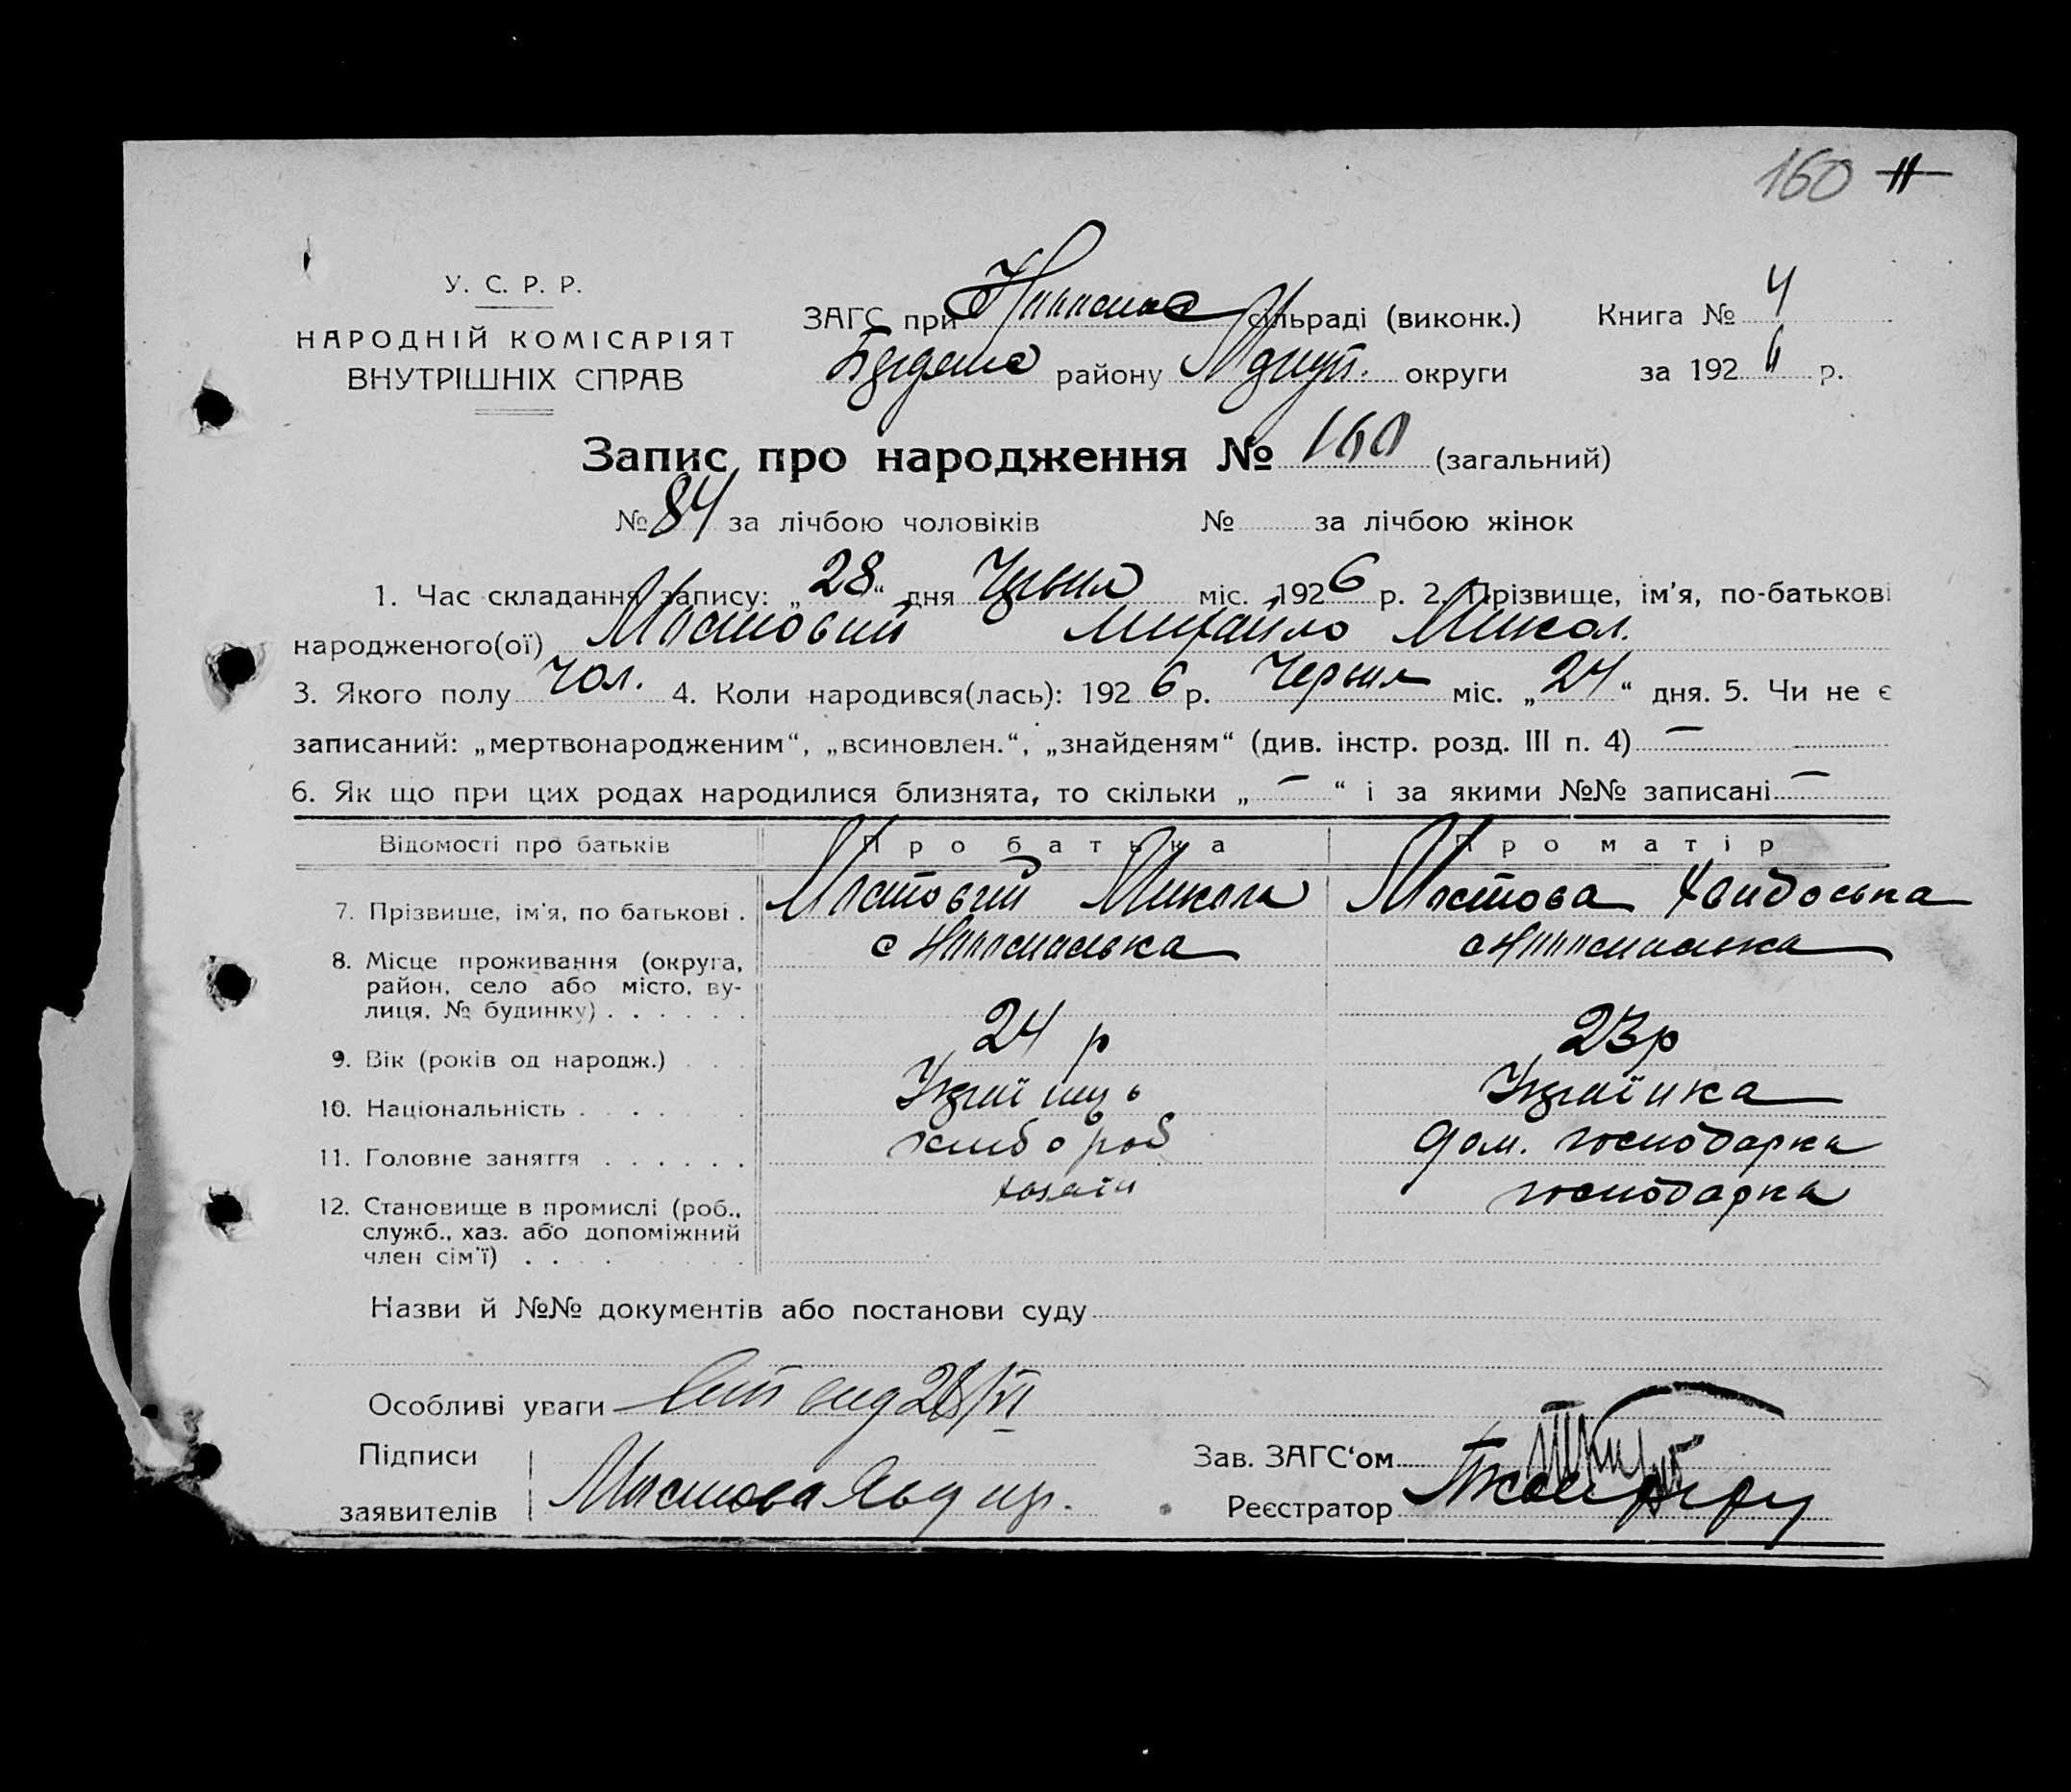 160 11
У. С. Р. Р.
НАРОДНІЙ КОМІСАРІЯТ
ВНУТРІШНІХ СПРАВ
ЗАГС при сільраді (виконк.) Книга № 4
району округи за 1926 р.
Запис про народження № 160 (загальний)
№ 84 за лічбою чоловіків № за лічбою жінок
1. Час складання запису: „28“ дня Червня міс. 1926 р. 2. Прізвище, ім'я, по-батькові
народженого(ої) Мостовий Михайло Микол.
3. Якого полу чол. 4. Коли народився(лась): 1926 р. Червня міс. „24“ дня. 5. Чи не є
записаний: „мертвонародженим“, „всиновлен.“, „знайденям“ (див. інстр. розд. III п. 4) —
6. Як що при цих родах народилися близнята, то скільки „—“ і за якими №№ записані —
Відомості про батьків Про батька Про матір
7. Прізвище, ім'я, по батькові . Мостовий Микола Мостова Хвидоська
8. Місце проживання (округа,
район, село або місто, ву-
лиця, № будинку) . . . . . .
9. Вік (років од народж.) . . . 24 р 23 р
10. Національність . . . . . Українць Українка
11. Головне заняття . . . . . . хлибороб дом. господарка
12. Становище в промислі (роб., хазаїн господарка
служб., хаз. або допоміжний
член сім'ї) . . . .
Назви й №№ документів або постанови суду
Особливі уваги 28/VI
Підписи Зав. ЗАГС'ом
заявителів Мостова Реєстратор